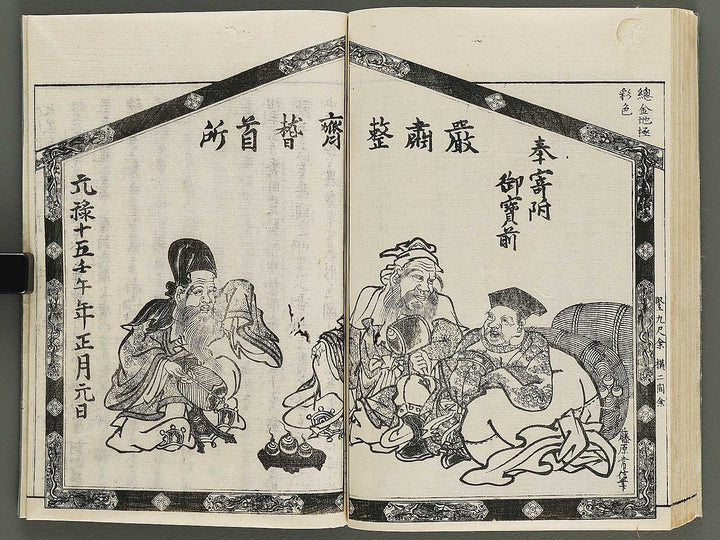 總金地極
彩色
嚴肅整齊誓首所
奉寄附
御寶前
元祿十五壬午年正月元日
竪九尺余 横二間余
藤原常信筆